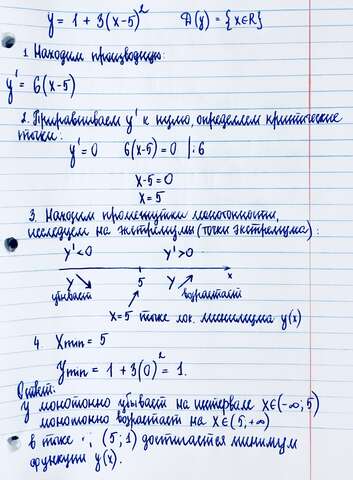 y = 1 + 3(x-5)² D(y) = {x∈R}
1. Находим производную:
y' = 6(x-5)
2. Приравниваем y' к нулю, определяем критические
точки:
y' = 0 6(x-5) = 0 |:6
x-5 = 0
x = 5
3. Находим промежутки монотонности,
исследуем на экстремумы (точки экстремума):
y' < 0 y' > 0
y 5 y x
убывает возрастает
x = 5 точке лок. минимума y(x)
4. Xmin = 5
Ymin = 1 + 3(0)² = 1.
Ответ:
y монотонно убывает на интервале x∈(-∞; 5)
монотонно возрастает на x∈(5; +∞)
в точке (5; 1) достигается минимум
функции y(x).